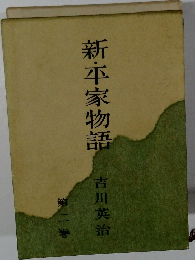 新・平家物語
吉川英治
第二巻